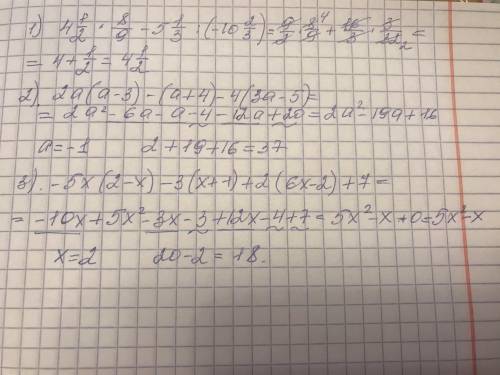 1) 4 1/2 · 8/9 - 5 1/3 : (-10 2/3) = 9/2 · 8⁴/9 + 16/3 · 3/32₂ =
= 4 + 1/2 = 4 1/2
2). 2a(a-3) - (a+4) - 4(3a-5) =
= 2a² - 6a - a - 4 - 12a + 20 = 2a² - 19a + 16
a = -1 2 + 19 + 16 = 37
3). -5x(2-x) - 3(x+1) + 2(6x-2) + 7 =
= -10x + 5x² - 3x - 3 + 12x - 4 + 7 = 5x² - x + 0 = 5x² - x
x = 2 20 - 2 = 18.